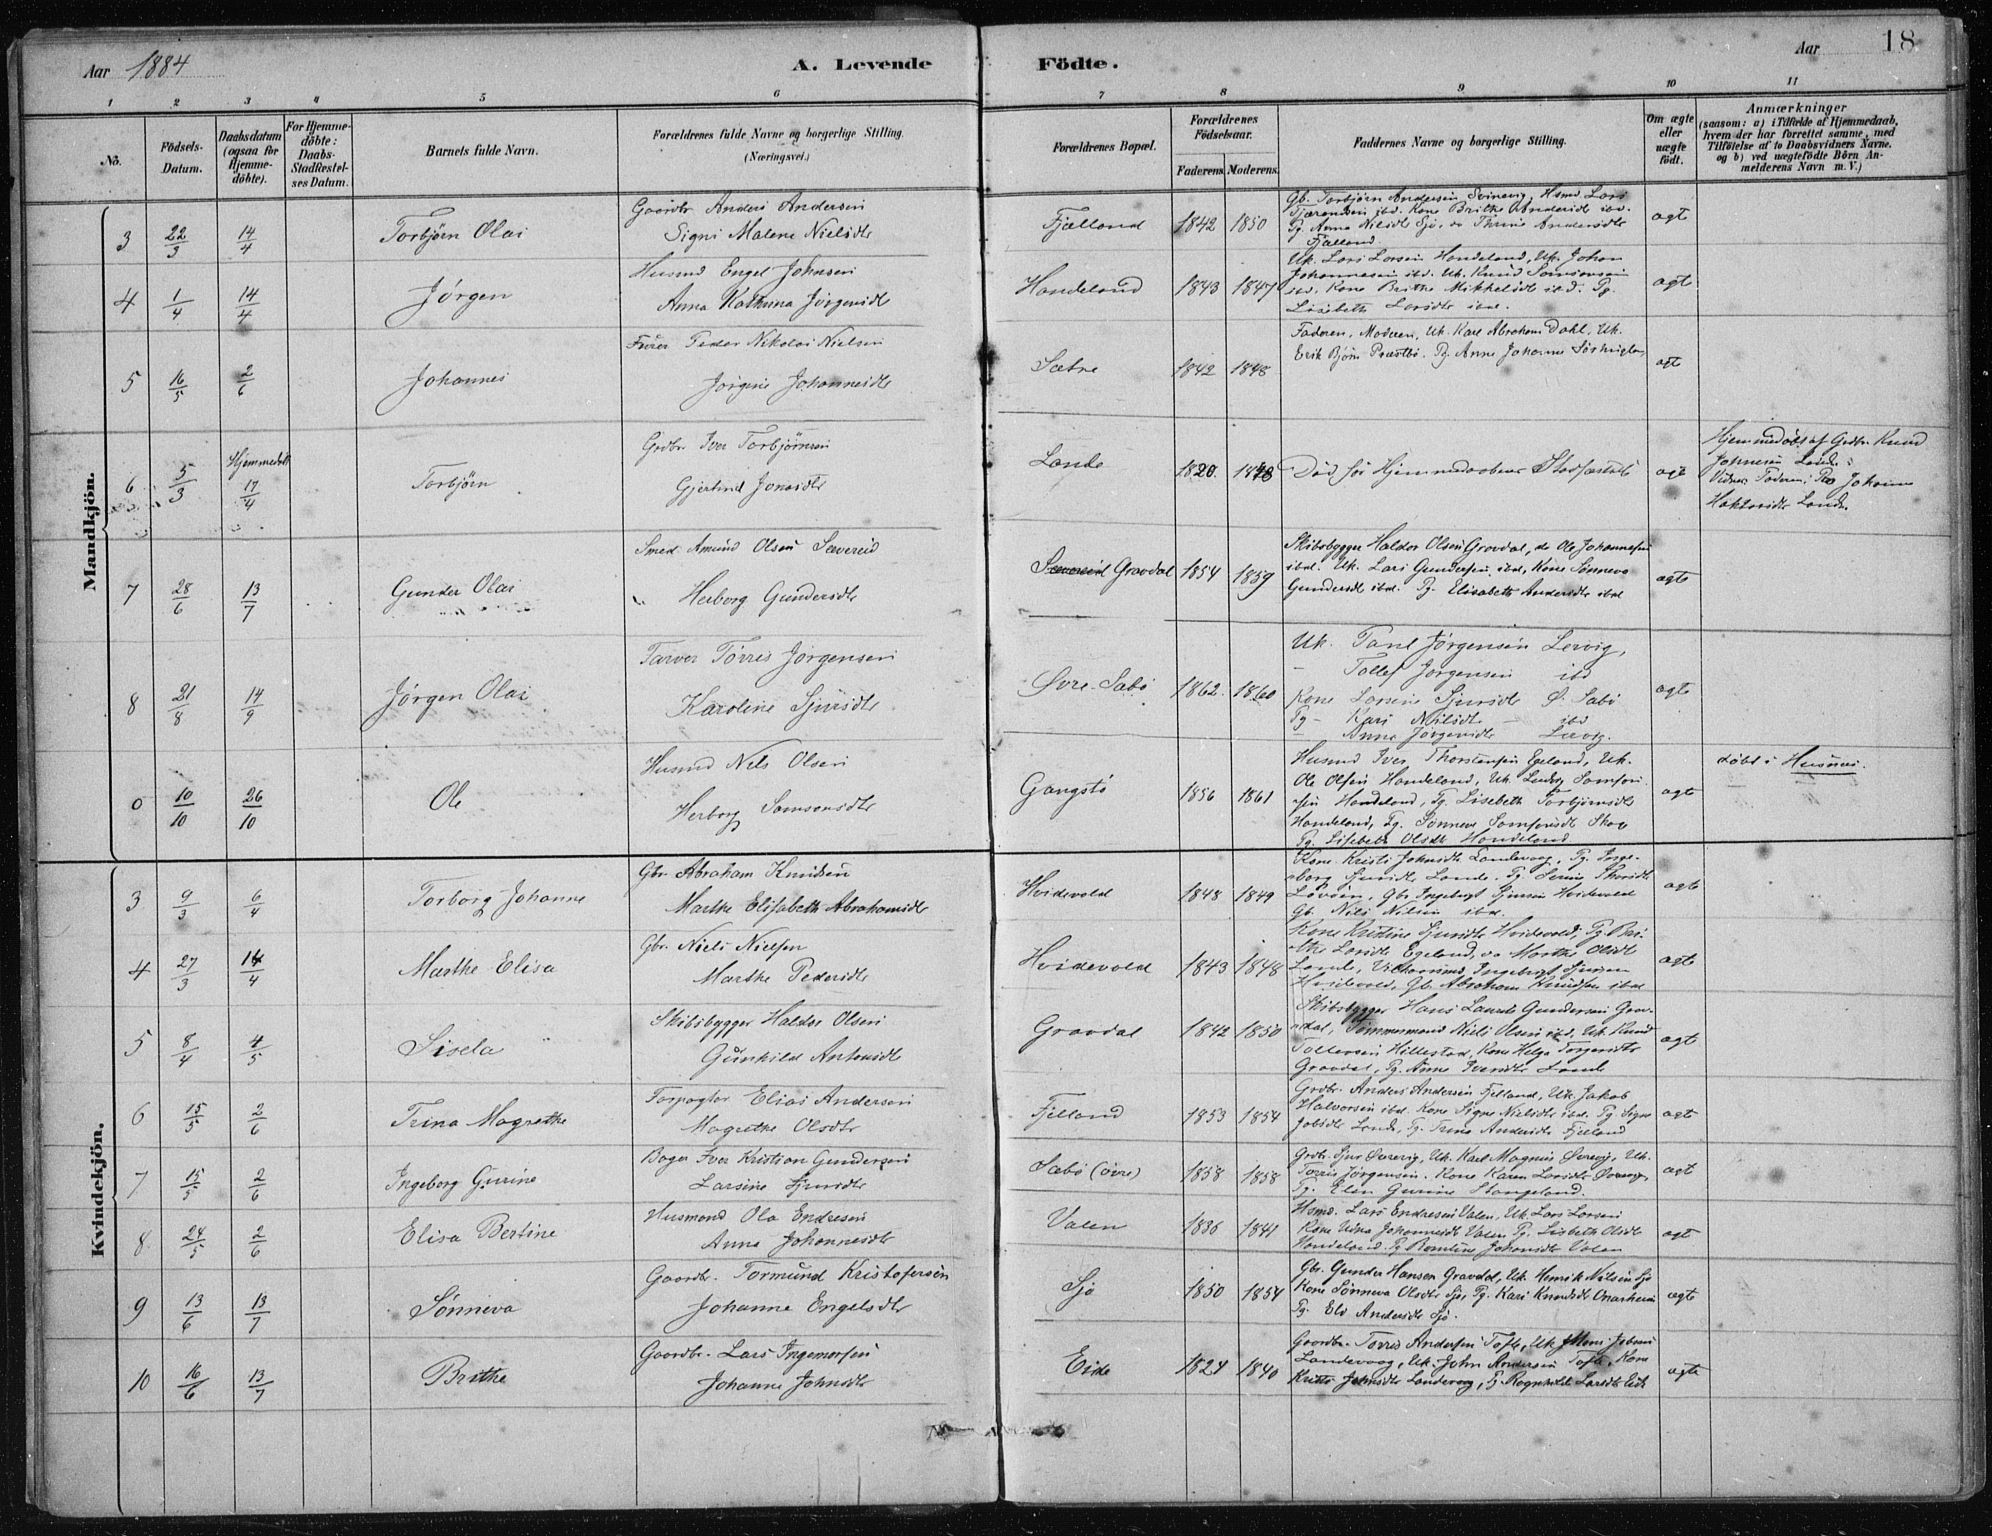 Aar 1884 A. Levende Födte. Aar 18
1 2 3 4 5 6 7 8 9 10 11
No.
Födsels-Datum.
Daabsdatum (ogsaa for Hjemme-döbte).
For Hjemme-döbte: Daabs-Stadfæstel-ses Datum.
Barnets fulde Navn.
Forældrenes fulde Navne og borgerlige Stilling. (Næringsvei.)
Forældrenes Bopæl.
Forældrenes Födselsaar.
Faderens. Moderens.
Faddernes Navne og borgerlige Stilling.
Om ægte eller uægte födt.
Anmærkninger
(saasom: a) i Tilfælde af Hjemmedaab, hvem der har forrettet samme, med Tilföielse af to Daabsvidners Navne. og b) ved uægtefödte Börn An-melderens Navn m. V.)
Mandkjön.
3 22/3 14/4 Torbjørn Olai
Gaardbr Anders Andersen
Signi Malene Nielsdtr
Fjælland 1842 1850
Gb. Torbjørn Andersen Svinevig, Hsmd Lars
ibd. Kone Brithe Andersdt ibd.
Pg. Anna Nilsdt Sjø, Thrine Andersdtr
Fjælland
ægte
4 1/4 14/4 Jørgen
Husmd Engel Johnsen
Anna Kathrina Jørgensdt
Handeland 1843 1847
Uk. Lars Larsen Handeland, Uk. Johan
Johannesen ibd. Uk. Knud Samsonsen
ibd. Kone Brithe Mikkelsdt ibd. Pg.
Lisebeth Larsdtr ibd.
ægte
5 16/5 2/6 Johannes
Peder Nikolai Nielsen
Jørgine Johannesdtr
Sætre 1842 1848
Faderen, Moderen, Uk. Karl Abraham Dahl. Uk.
Erik Bjørn Præstbø. Pg. Anne Johanne
ægt
6 5/3 Hjemmedøbt 17/4 Torbjørn
Grdbr. Iver Torbjørnsen
Gjertrud Jonasdtr
Lande 1820. 1848
Død før Hjemmedaabens Stadfæstelse
ægte
Hjemmedøbt af Grdbr. Knud
Johnesen Lande.
Vidner: Faderen, Pig Johanne
Lande.
7 28/6 13/7 Gunder Olai
Smed Amund Olsen Sævereid
Herborg Gundersdtr
Sævereid Gravdal 1854 1859
Skibsbygger Haldor Olsen Gravdal, do Ole Johannesen
ibd. Uk. Lars Gundersen ibd, Kone Sønneva
Gundersdt ibd. Pg. Elisabeth Andersdtr ibd
ægte
8 21/8 14/9 Jørgen Olai
Farver Tørres Jørgensen
Karoline Sjursdtr
Øvre-Sabø 1862. 1860
Uk. Paul Jørgensen Lervig,
— Tollef Jørgensen ibd
Kone Larsine Sjursdt Ø. Sabø
Pg — Kari Nilsdt — ibd
Anna Jørgensdtr Lervig.
ægte
10/10 26/10 Ole
Husmd Nels Olsen
Herborg Samsonsdtr
Gangstø 1856 1861
Husmd Iver Thorstensen Egeland, Uk.
Ole Olsen Handeland, Uk. Ludvig Samson-
sen Handeland, Pg. Lisebeth Torbjørnsdtr
Handeland, Pg. Sønneva Samsonsdt
Pg. Lisebeth Olsdtr Handeland
ægte
døbt i Husnes.
Kvindekjön.
3 9/3 6/4 Torborg Johanne
Gbr. Abraham Knudsen
Marthe Elisabeth Abrahamsdtr
Hvidevold 1848 1849
Kone Kristi Johnsdt Landevaag, Pg. Inge-
borg Sjursdt Lande.
Gbr Ingebrigt Sjursen Hvidevold
Gb. Nils Nilsen ibd.
ægte
4 27/3 14/4 Marthe Elisa
Gbr. Niels Nielsen
Marthe Pedersdtr
Hvidevold 1843 1848
Kone Kristine Sjursdt Hvidevold, Pg. Ber-
the Larsdt Egeland, Marthe Olsdt
Lande, Ingebrigt Sjursen
Hvidevold, Gb. Abraham Knudsen ibd
ægte
5 8/4 4/5 Sisela
Skibsbygger Haldor Olsen
Gunhild Antonsdtr
Gravdal 1842 1850
Skibsbygger Hans Laurits Gundersen Grav-
dal, Tømmermand Niels Olsen ibd, Uk. Knud
Tollefsen Hillestad, Kone Helga Torgersdtr
Gravdal, Pg. Anna Iversdtr Lande
ægte
6 15/5 2/6 Trina Magrethe
Forpagter Elias Andersen
Magrethe Olsdtr
Fjelland 1853 1854
Grdbr. Anders Andersen Fjelland, Uk. Jakob
Halvorsen ibd. Kone Signe Nielsdtr ibd. Pg Signe
Jobsdtr Lande, Pg. Trina Andersdtr Fjelland
ægte
7 15/5 2/6 Ingeborg Gurine
Bager Iver Kristian Gundersen
Larsine Sjursdtr
Sæbø (øvre) 1858 1858
Grdbr Sjur Uk. Karl Magnus Uk.
Torris Jørgensen. Kone Karen Larsdtr
Pg. Elen Gurine Stangeland.
ægt
8 24/5 2/6 Elisa Bertine
Husmand Ola Endresen
Anna Johannesdtr
Valen 1836 1841
Hsmd. Lars Endresen Valen, Uk. Lars Larsen
Kone Johannesdt Valen Pg. Lisbeth Olsdt
Handeland. Pg Johnsdtr Valen
ægt
9 13/6 13/7 Sønneva
Gaardbr. Tormund Kristofersen
Johanne Engelsdtr
Sjø 1850 1854
Gbr. Gunder Hansen Gravdal, Uk. Henrik Nilsen Sjø
Kone Sønneva Olsdtr Sjø, Pg. Kari Knudsdt Onarheim
Pg. Eli Andersdt Sjø.
ægte
10 16/6 13/7 Brithe
Gaardbr. Lars Ingemorsen
Johanne Johnsdtr
Eide 1824 1840
Gaardbr. Torris Andersen Tofte, Uk. Jobsen
Landevaag, Uk. John Andersen Tofte, Kone
Kristi Johnsdt Landevaag, Pg. Ragnhilda Larsdtr Eide
ægte